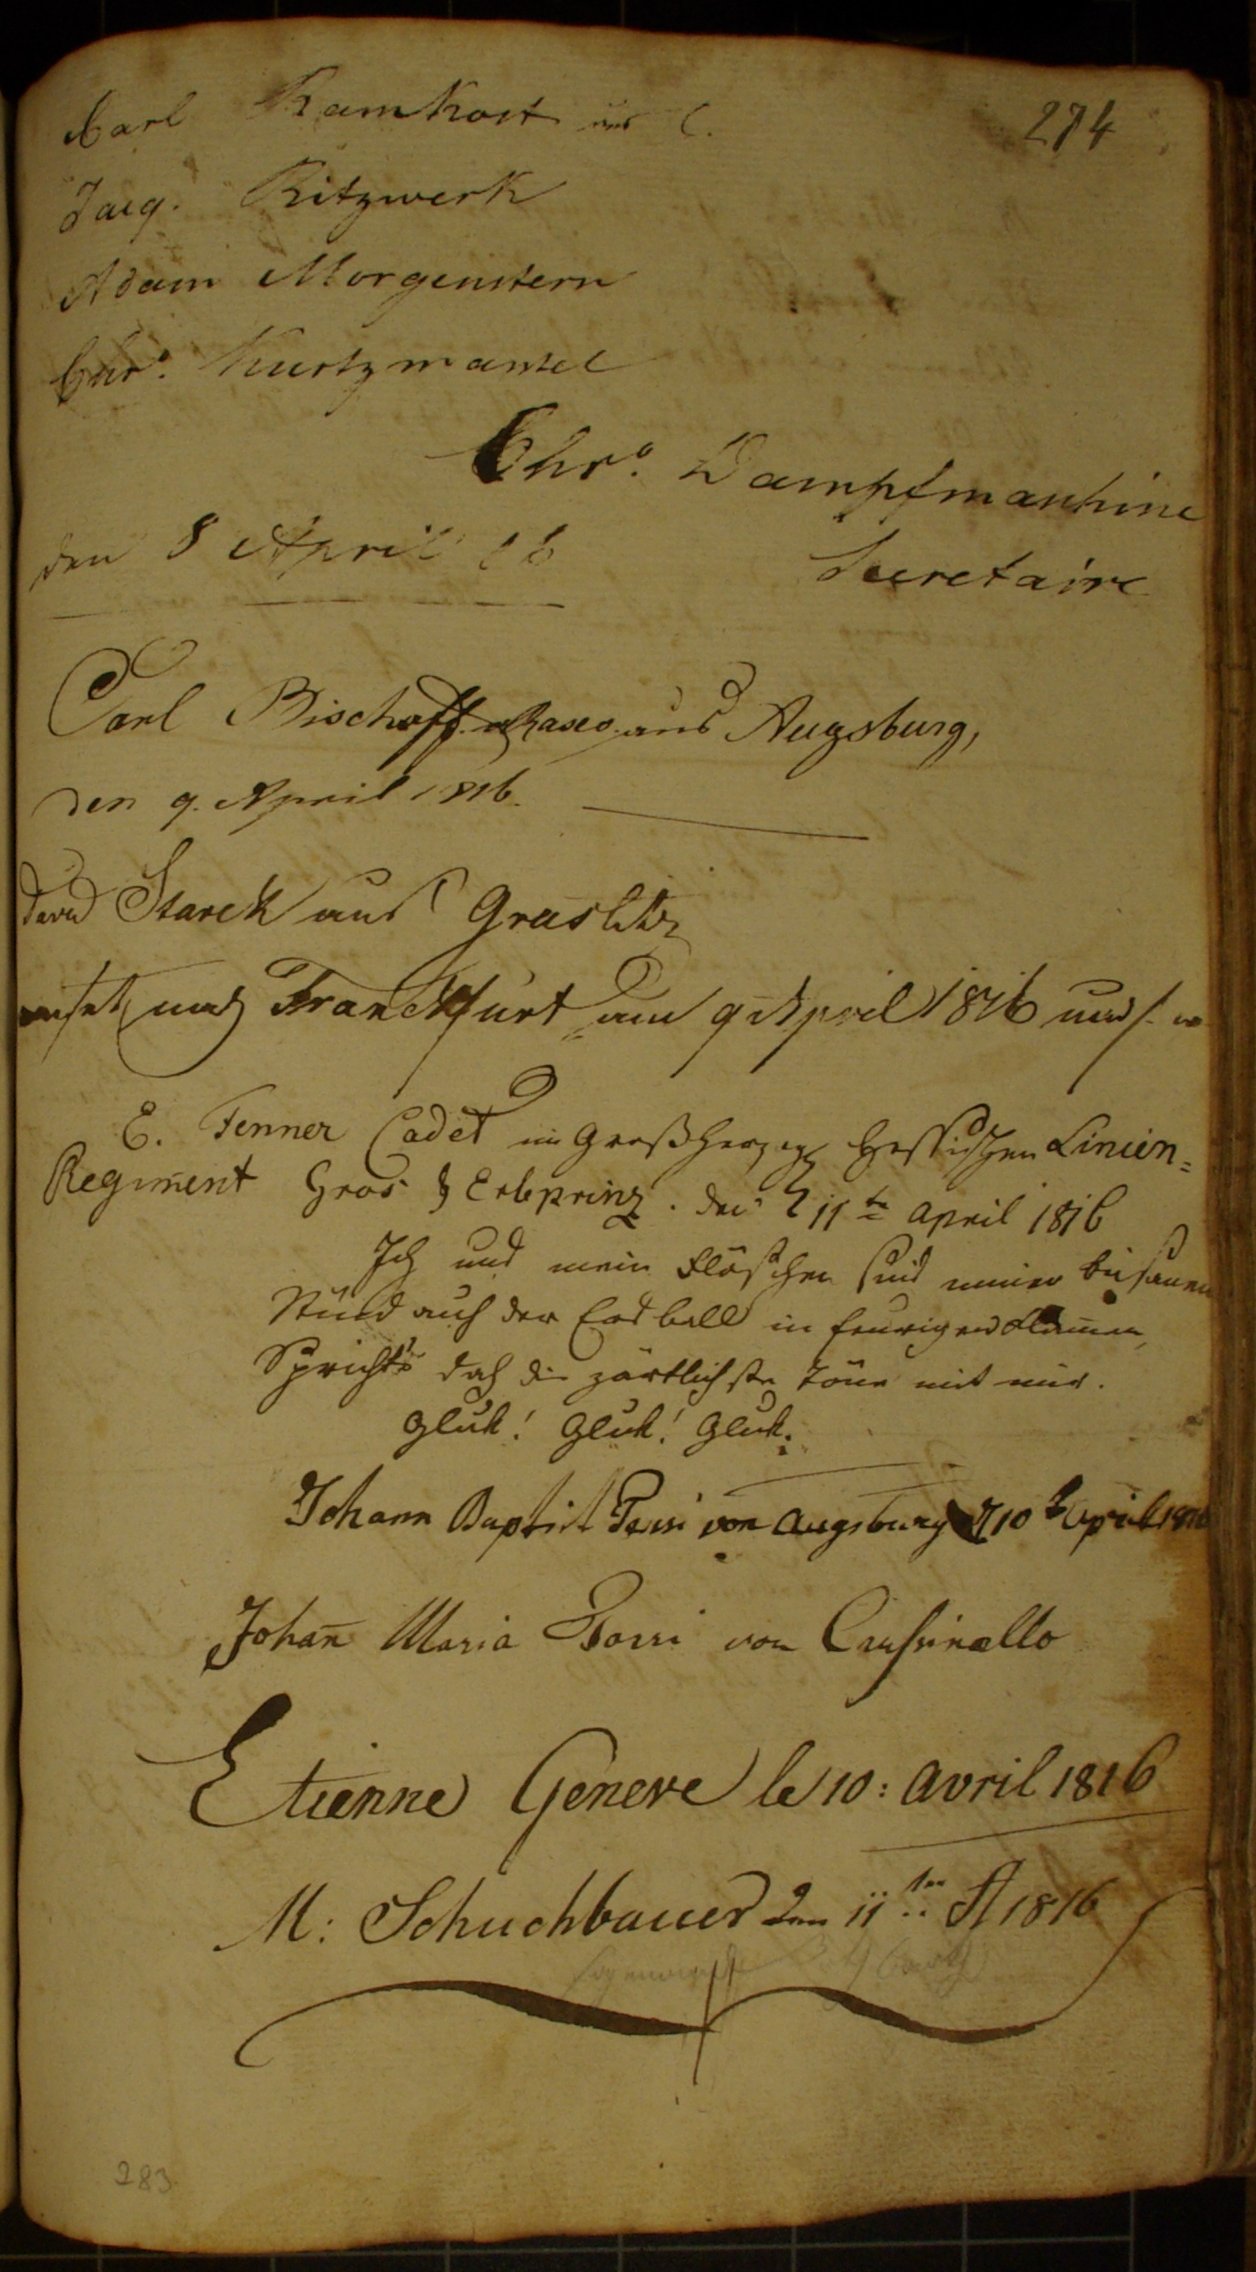 274
Carl Ramkost aus C.
Jacq. Ritzwerk
Adam Morgenstern
Chro. Kurtzmantel
Chro. Dampfmaschine
den 8 April 16
Secretaire
Carl Bischoff aus Augsburg,
den 9. April 1816.
David Starck aus Graslitz
nach Franckfurt am 9 April 1816
E. Fenner Cadet im Großherzogl Hessischen Linien=
Regiment Gros & Erbprinz. den 11te April 1816
Ich und mein Fläschen sind immer beisamen
Niemd auf der Erdball in feurigen Flamen
Spricht's doch die zärtlichste Töne mit mir.
Gluk! Gluk! Gluk.
Johann Baptist von Augsburg d 10t April 1816
Johan̄ Maria von
Etienne Geneve le 10: Avril 1816
M: Schuchbauer den 11ten A 1816
283